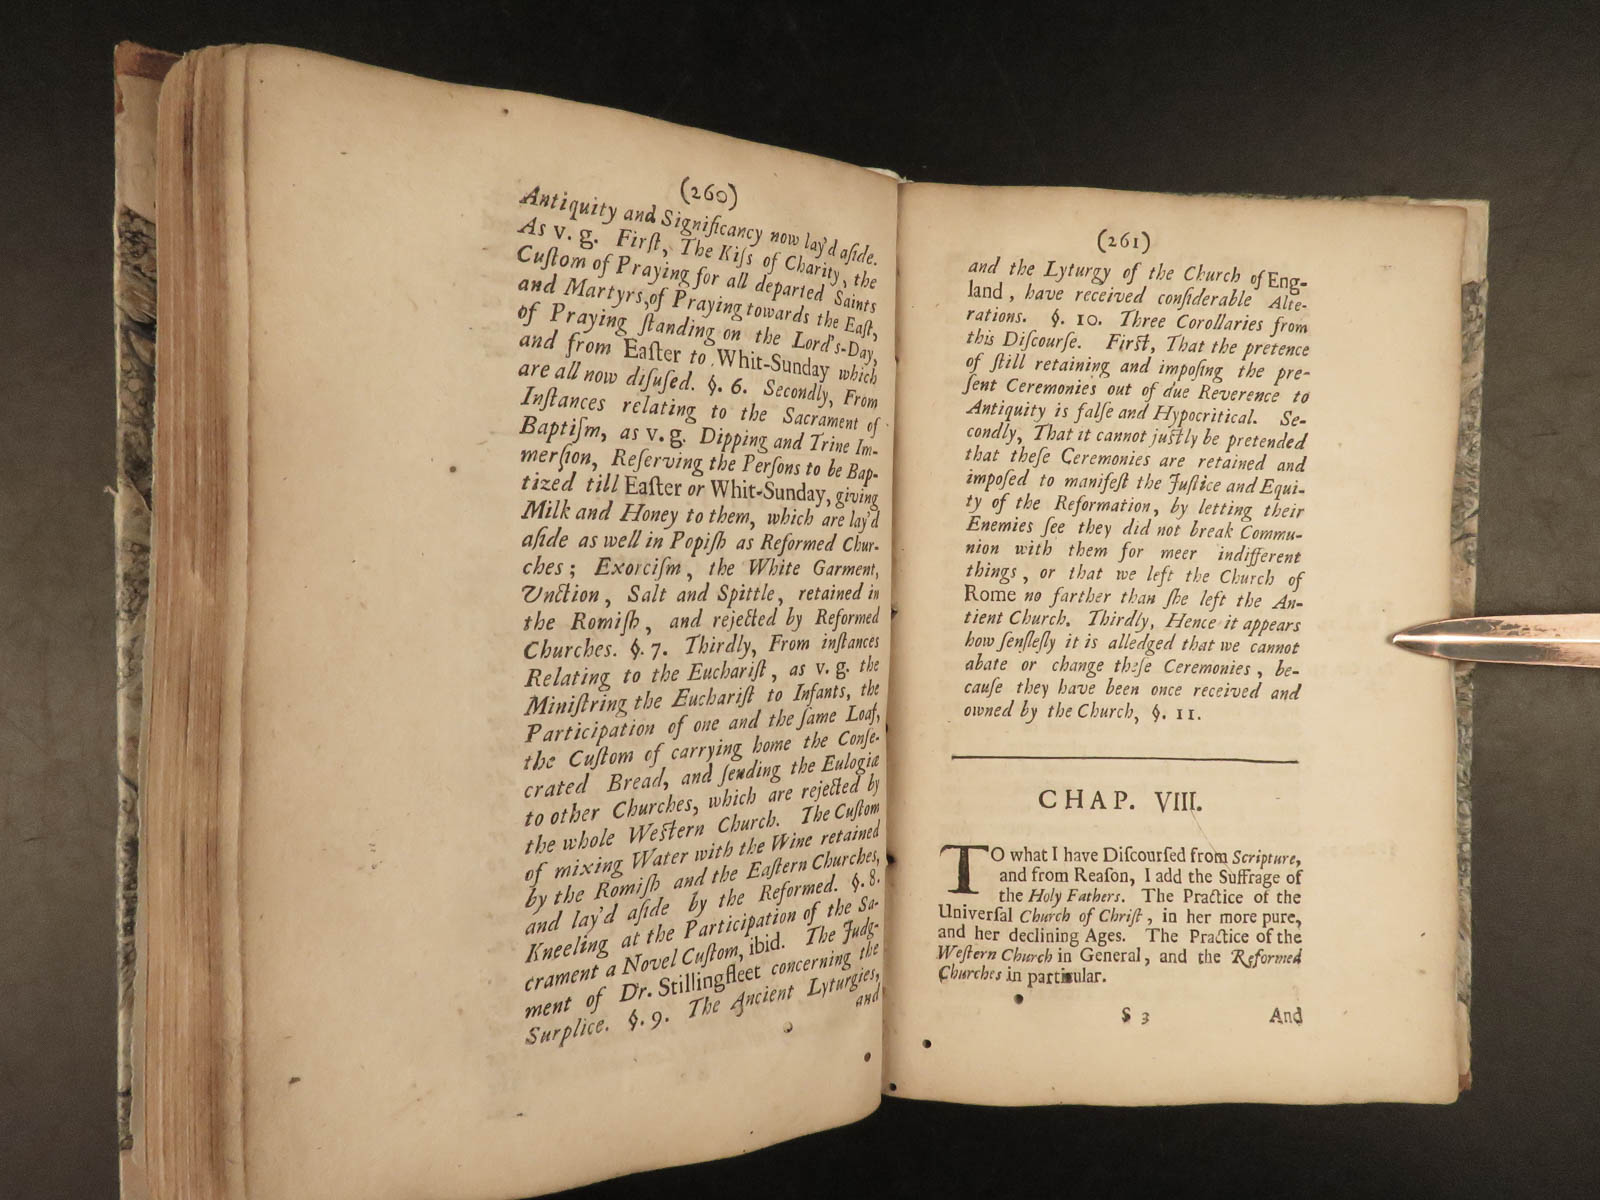 (260)
Antiquity and Significancy now lay'd aſide.
As v. g. Firſt, The Kiſs of Charity, the
Cuſtom of Praying for all departed Saints
and Martyrs, of Praying towards the Eaſt,
of Praying ſtanding on the Lord's-Day,
and from Eaſter to Whit-Sunday which
are all now diſuſed. §. 6. Secondly, From
Inſtances relating to the Sacrament of
Baptiſm, as v. g. Dipping and Trine Im-
merſion, Reſerving the Perſons to be Bap-
tized till Eaſter or Whit-Sunday, giving
Milk and Honey to them, which are lay'd
aſide as well in Popiſh as Reformed Chur-
ches; Exorciſm, the White Garment,
Unction, Salt and Spittle, retained in
the Romiſh, and rejected by Reformed
Churches. §. 7. Thirdly, From inſtances
Relating to the Euchariſt, as v. g. the
Miniſtring the Euchariſt to Infants, the
Participation of one and the ſame Loaf,
the Cuſtom of carrying home the Conſe-
crated Bread, and ſending the Eulogiæ
to other Churches, which are rejected by
the whole Weſtern Church. The Cuſtom
of mixing Water with the Wine retained
by the Romiſh and the Eaſtern Churches,
and lay'd aſide by the Reformed. §. 8.
Kneeling at the Participation of the Sa-
crament a Novel Cuſtom, ibid. The Judg-
ment of Dr. Stillingfleet concerning the
Surplice. §. 9. The Ancient Lyturgies,
and
(261)
and the Lyturgy of the Church of Eng-
land, have received conſiderable Alte-
rations. §. 10. Three Corollaries from
this Diſcourſe. Firſt, That the pretence
of ſtill retaining and impoſing the pre-
ſent Ceremonies out of due Reverence to
Antiquity is falſe and Hypocritical. Se-
condly, That it cannot juſtly be pretended
that theſe Ceremonies are retained and
impoſed to manifeſt the Juſtice and Equi-
ty of the Reformation, by letting their
Enemies ſee they did not break Commu-
nion with them for meer indifferent
things, or that we left the Church of
Rome no farther than ſhe left the An-
tient Church. Thirdly, Hence it appears
how ſenſleſly it is alledged that we cannot
abate or change theſe Ceremonies, be-
cauſe they have been once received and
owned by the Church, §. 11.
CHAP. VIII.
TO what I have Diſcourſed from Scripture,
and from Reaſon, I add the Suffrage of
the Holy Fathers. The Practice of the
Univerſal Church of Chriſt, in her more pure,
and her declining Ages. The Practice of the
Weſtern Church in General, and the Reformed
Churches in particular.
S 3 And